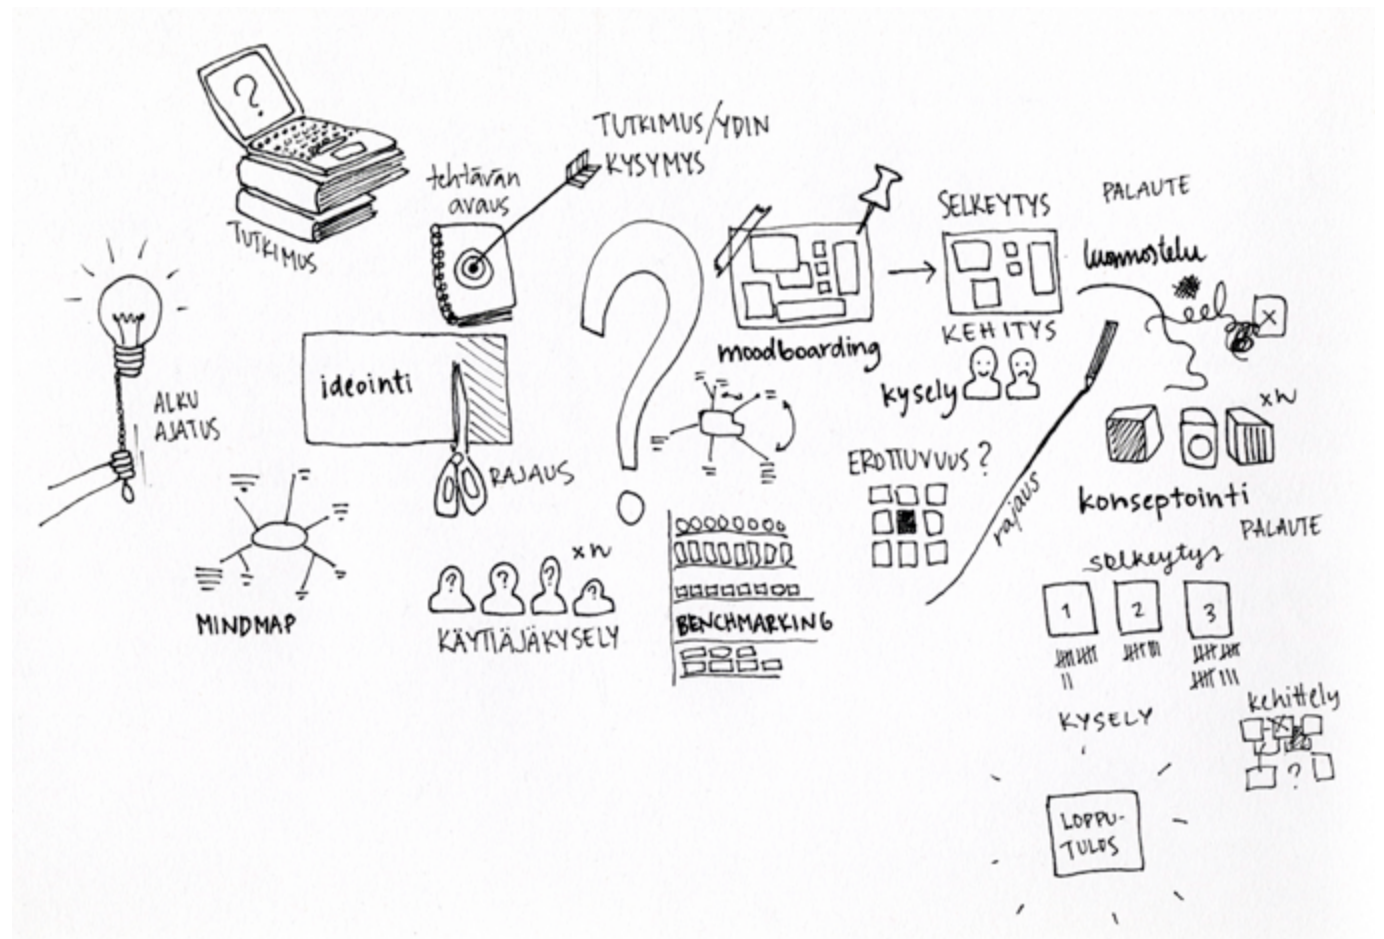 ?
TUTKIMUS
ALKU
AJATUS
MINDMAP
ideointi
RAJAUS
tehtävän
avaus
TUTKIMUS/YDIN
KYSYMYS
?
? ? ? ?
xn
KÄYTTÄJÄKYSELY
moodboarding
BENCHMARKING
SELKEYTYS
KEHITYS
kysely
EROTTUVUUS?
rajaus
PALAUTE
luonnostelu
x
xn
konseptointi
PALAUTE
selkeytys
1 2 3
KYSELY
kehittely
x
?
LOPPU-
TULOS